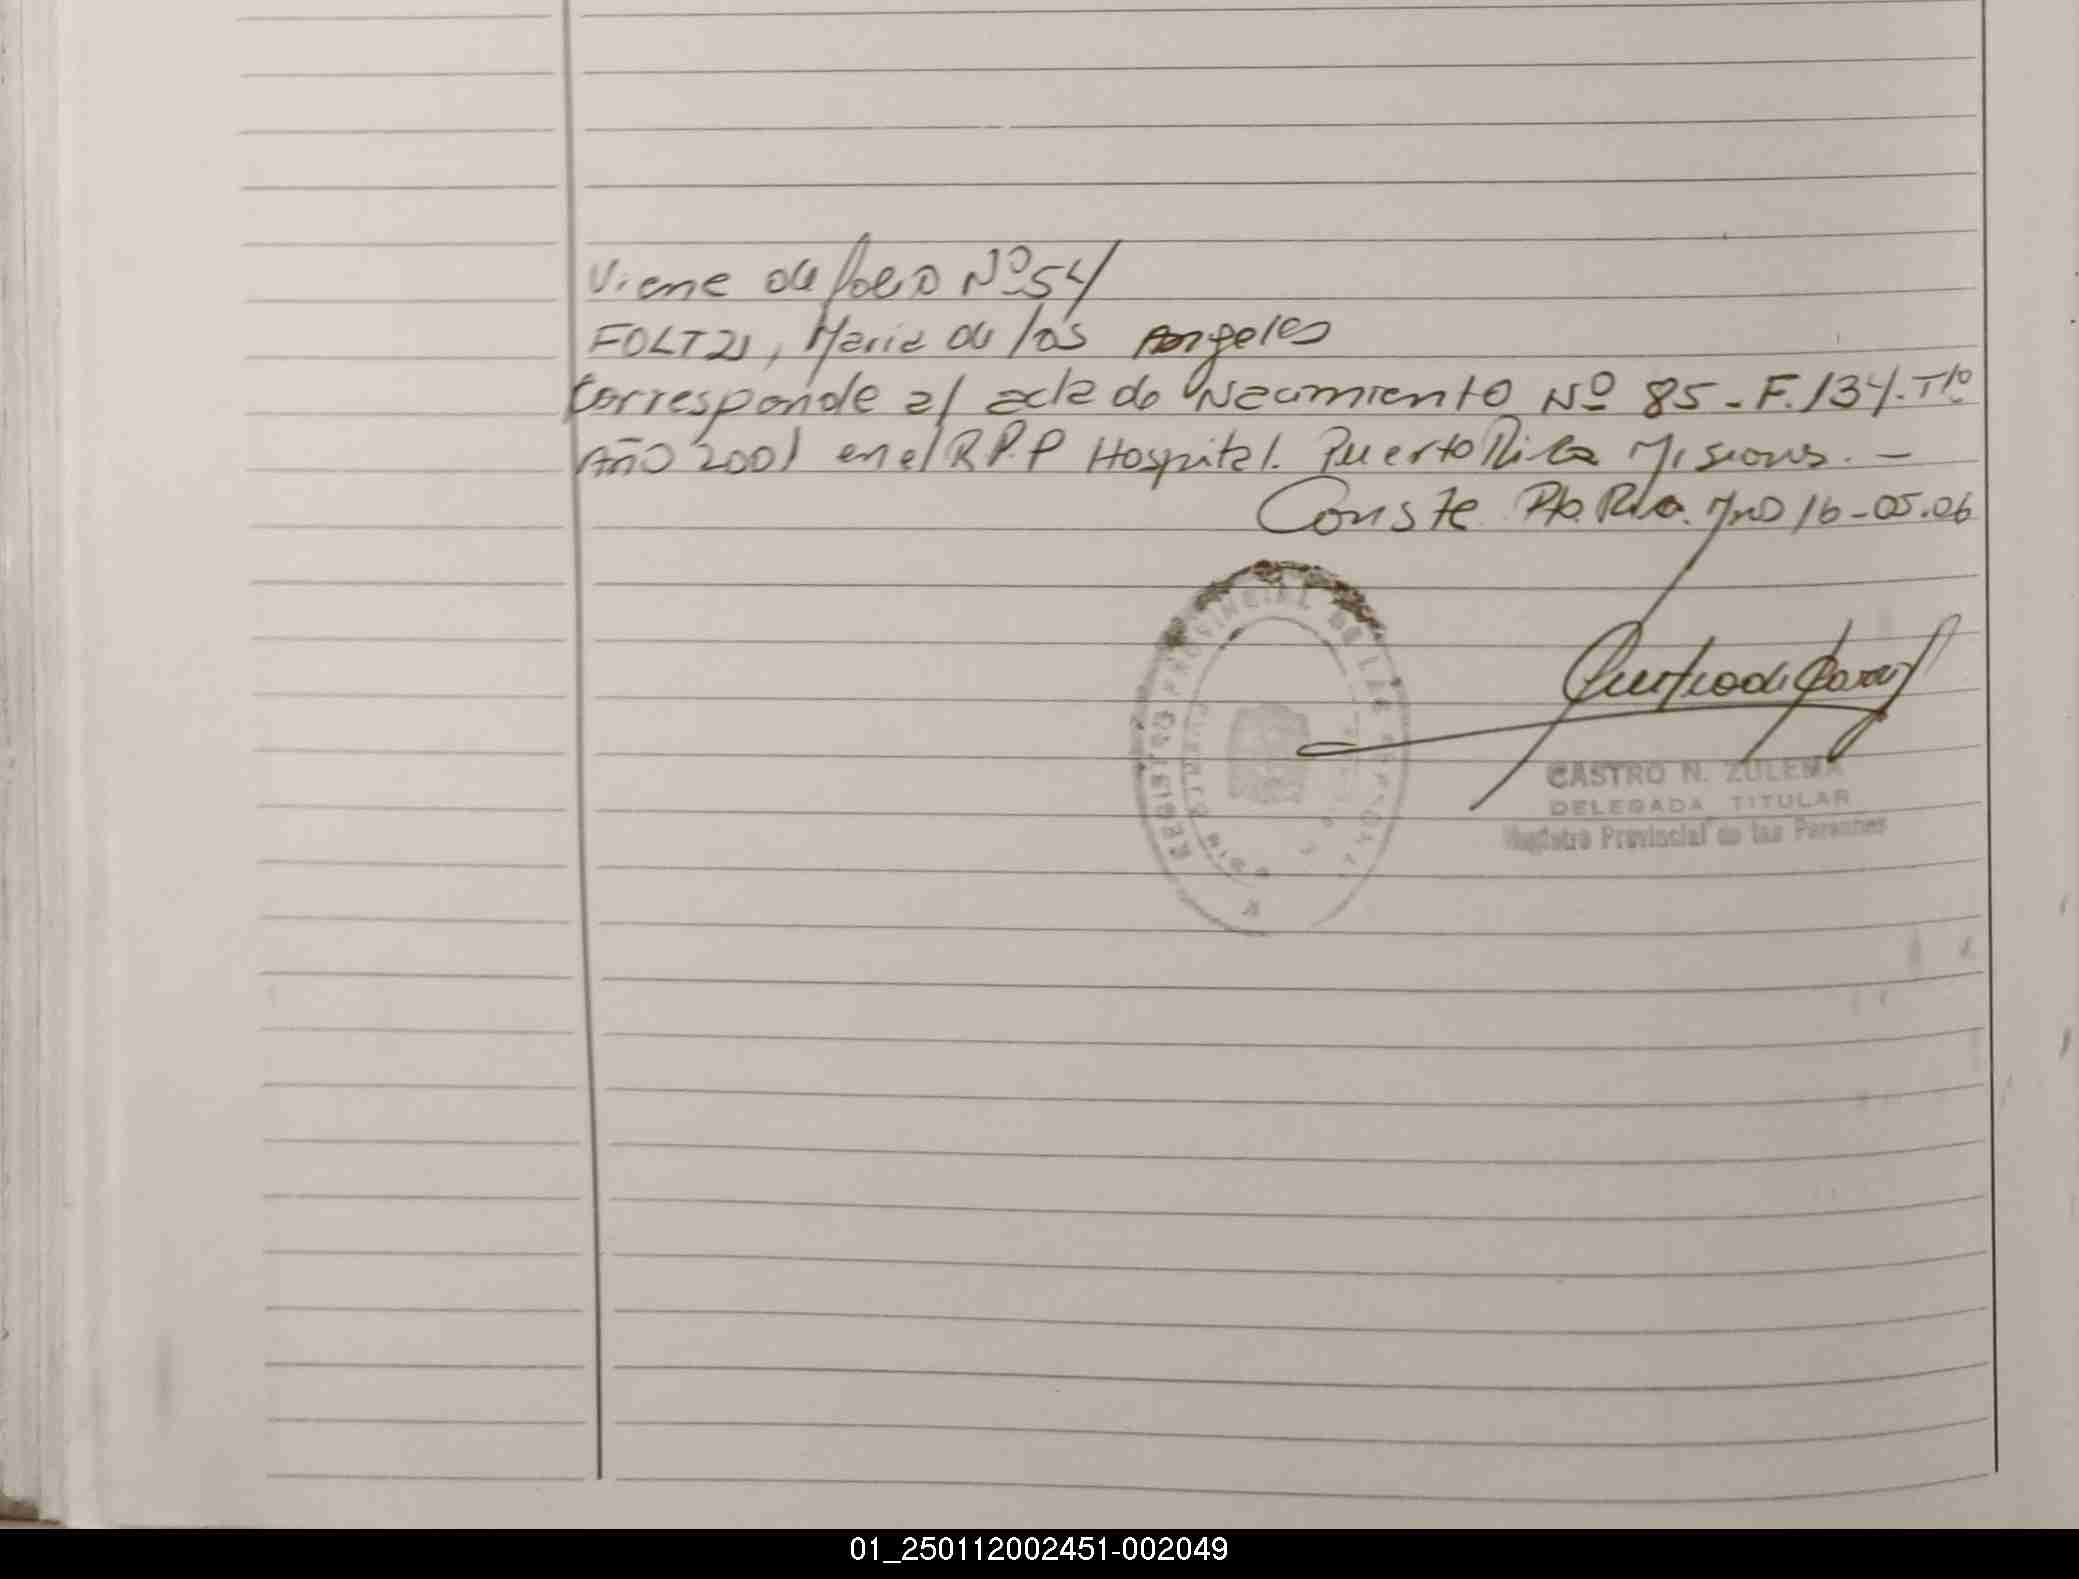 Viene de folio Nº 54
FOLTZ, Maria de los Angeles
Corresponde al acta de Nacimiento Nº 85 - F. 134. Tº
Año 2001 en el R.P.P Hospital. Puerto Rico Misiones. -
Conste. Pto. Rico. Mnes 16-05.06
REGISTRO PROVINCIAL DE LAS PERSONAS
PUERTO RICO
CASTRO N. ZULEMA
DELEGADA TITULAR
Registro Provincial de las Personas
01_250112002451-002049